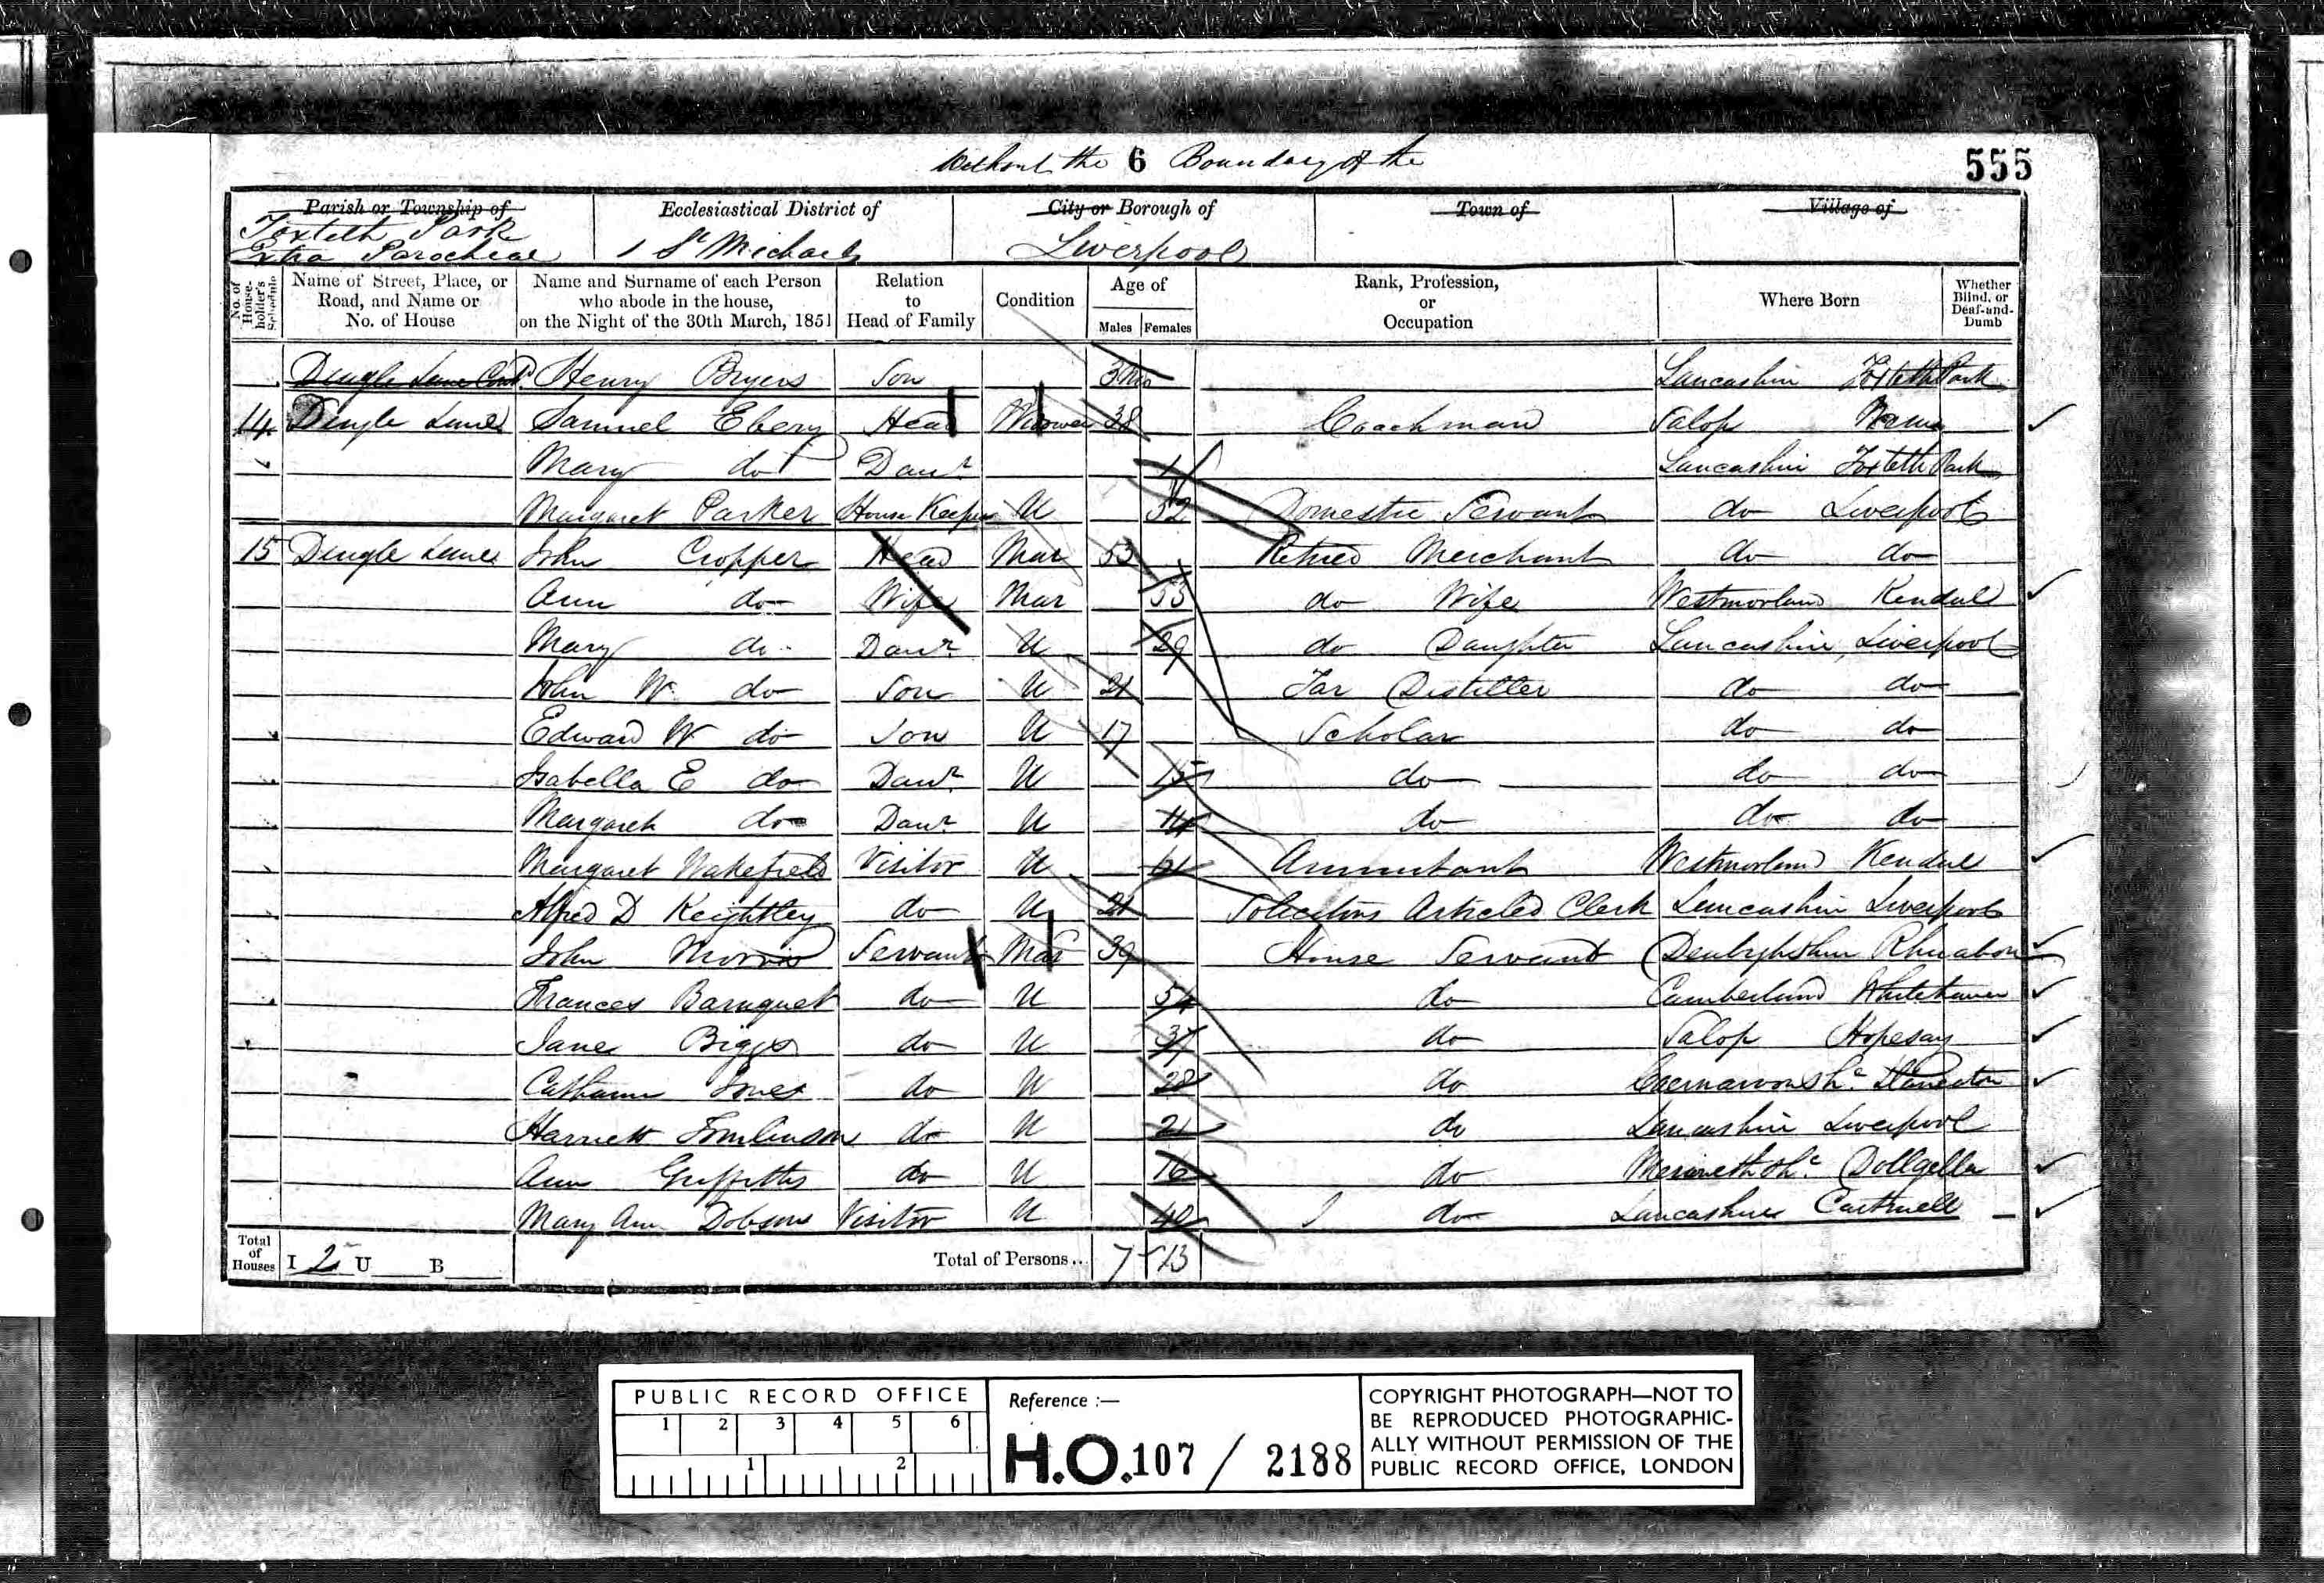 Without the 6 Boundary of the
555
Parish or Township of Ecclesiastical District of City or Borough of Town of Village of
Toxteth Park
Extra Parochial St Michaels Liverpool
No. of House-holder's Schedule
Name of Street, Place, or Road, and Name or No. of House
Name and Surname of each Person who abode in the house, on the Night of the 30th March, 1851
Relation to Head of Family
Condition
Age of
Males Females
Rank, Profession, or Occupation
Where Born
Whether Blind, or Deaf-and-Dumb
Dingle Lane Contd. Henry Bryers Son 3 Mo Lancashire Toxteth Park
14 Dingle Lane Samuel Ebery Head Widower 38 Coachman Salop
Mary do Daur. Lancashire Toxteth Park
Margaret Parker House Keeper U 52 Domestic Servant do Liverpool
15 Dingle Lane John Cropper Head Mar 53 Retired Merchant do do
Ann do Wife Mar 53 do Wife Westmorland Kendal
Mary do Daur. U 29 do Daughter Lancashire Liverpool
John W. do Son U 21 Tar Distiller do do
Edward W do Son U 17 Scholar do do
Isabella E do Daur. U 15 do do do
Margaret do Daur. U 14 do do do
Margaret Wakefield Visitor U Annuitant Westmorland Kendal
Alfred D Keightley do U 21 Solicitors Articled Clerk Lancashire Liverpool
John Servant Mar 39 House Servant Denbighshire Rhuabon
Frances do U 54 do Cumberland Whitehaven
Jane Biggs do U 37 do Salop Hopesay
Catharine Jones do U 28 do Caernarvonshe.
Harriett Tomlinson do U 21 do Lancashire Liverpool
Ann Griffiths do U 16 do Merionethshe. Dollgella
Mary Ann Dobson Visitor U 40 do Lancashire Cartmell
Total of Houses I 2 U B Total of Persons.. 7 13
PUBLIC RECORD OFFICE
1 2 3 4 5 6
1 2
Reference :—
H.O. 107 / 2188
COPYRIGHT PHOTOGRAPH—NOT TO
BE REPRODUCED PHOTOGRAPHIC-
ALLY WITHOUT PERMISSION OF THE
PUBLIC RECORD OFFICE, LONDON